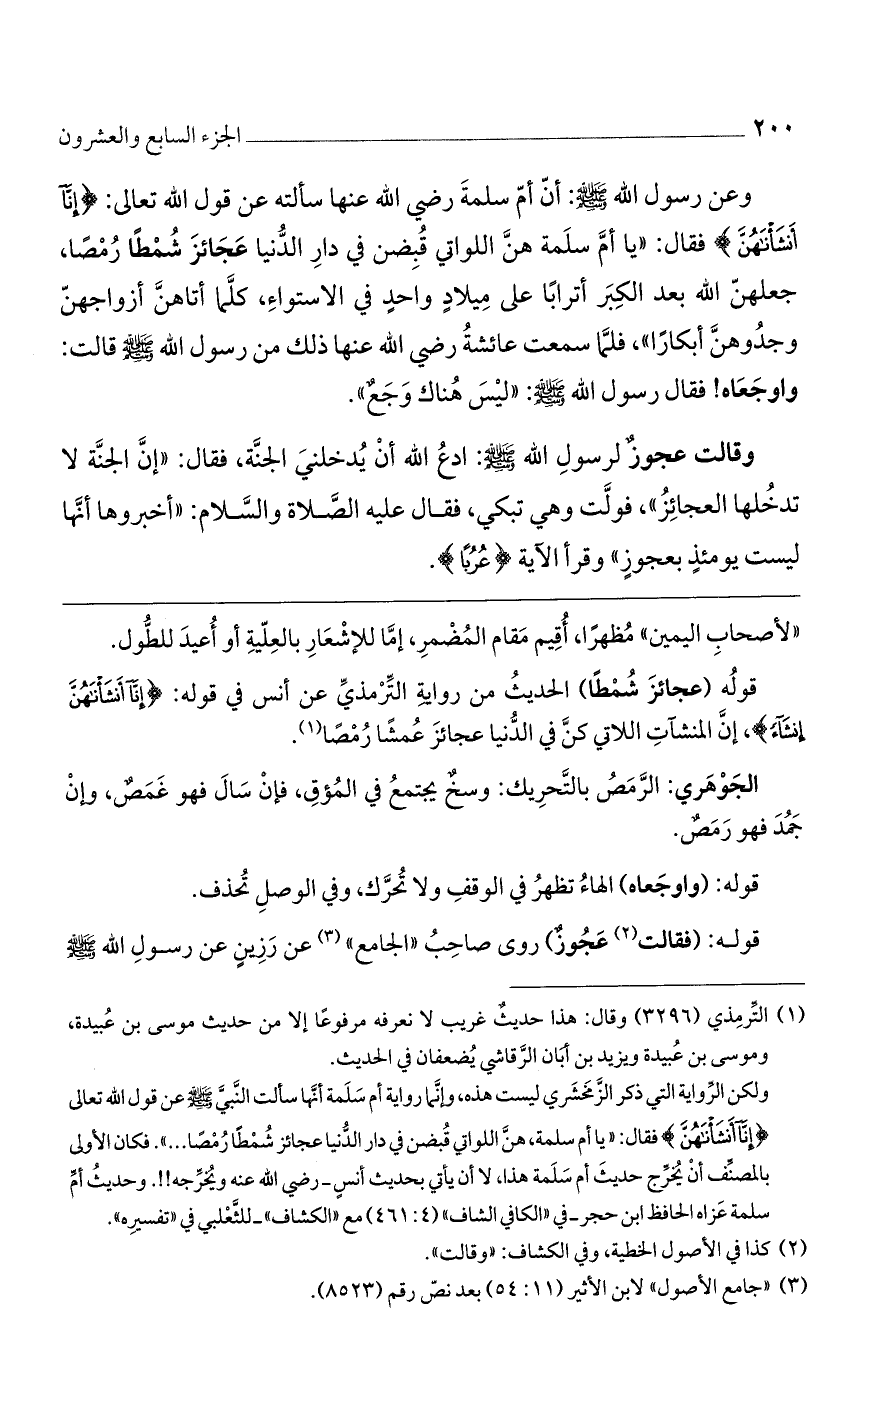 ٢٠٠ ـــــــــ الجزء السابع والعشرون
وعن رسول الله ﷺ: أنّ أمّ سلمةَ رضي الله عنها سألته عن قول الله تعالى: ﴿إِنَّآ
أَنشَأْنَٰهُنَّ﴾ فقال: «يا أمَّ سلَمة هنَّ اللواتي قُبِضن في دارِ الدُّنيا عَجَائزَ شُمْطًا رُمْصًا،
جعلهنّ الله بعد الكِبَر أترابًا على مِيلادٍ واحدٍ في الاستواءِ، كلَّما أتاهنَّ أزواجهنّ
وجدُوهنَّ أبكارًا»، فلمَّا سمعت عائشةُ رضي الله عنها ذلك من رسول الله ﷺ قالت:
واوجَعَاه! فقال رسول الله ﷺ: «ليْسَ هُناك وَجَعٌ».
وقالت عجوزٌ لرسولِ الله ﷺ: ادعُ الله أنْ يُدخلنيَ الجنَّة، فقال: «إنَّ الجنَّة لا
تدخُلها العجائِزُ»، فولَّت وهي تبكي، فقال عليه الصَّلاة والسَّلام: «أخبروها أنَّها
ليست يومئذٍ بعجوزٍ» وقرأ الآية ﴿عُرُبًا﴾.
«لأصحابِ اليمين» مُظهرًا، أُقِيم مَقام المُضْمرِ، إمَّا للإشْعَارِ بالعِلّيةِ أو أُعيدَ للطُّول.
قولُه (عجائزَ شُمْطًا) الحديثُ من روايةِ التِّرْمذيِّ عن أنس في قوله: ﴿إِنَّآ أَنشَأْنَٰهُنَّ
إِنشَآءً﴾، إنَّ المنشآتِ اللاتي كنَّ في الدُّنيا عجائزَ عُمشًا رُمْصًا(١).
الجَوْهَري: الرَّمَصُ بالتَّحرِيك: وسخٌ يجتمعُ في المُؤقِ، فإنْ سَالَ فهو غَمَصٌ، وإنْ
جَمُدَ فهو رَمَصٌ.
قوله: (واوجَعاه) الهاءُ تظهرُ في الوقفِ ولا تُحرَّك، وفي الوصلِ تُحذف.
قولـه: (فقالت(٢) عَجُوزٌ) روى صاحِبُ «الجامع»(٣) عن رَزِينٍ عن رسـولِ الله ﷺ
(١) التِّرمِذي (٣٢٩٦) وقال: هذا حديثٌ غريب لا نعرفه مرفوعًا إلا من حديث موسى بن عُبيدة،
وموسى بن عُبيدة ويزيد بن أبَان الرَّقاشي يُضعفان في الحديث.
ولكن الرِّواية التي ذكر الزَّمخشري ليست هذه، وإنَّما رواية أم سَلَمة أنَّها سألت النَّبيَّ ﷺ عن قول الله تعالى
﴿إِنَّآ أَنشَأْنَٰهُنَّ﴾ فقال: «يا أم سلمة، هنَّ اللواتي قُبضن في دار الدُّنيا عجائز شُمْطًا رُمْصًا...». فكان الأولى
بالمصنِّف أنْ يُخرِّج حديثَ أم سَلَمة هذا، لا أن يأتي بحديث أنسٍ ـ رضي الله عنه ويُخرِّجه!!. وحديثُ أمِّ
سلمة عَزاه الحافظ ابن حجر ـ في «الكافي الشاف» (٤: ٤٦١) مع «الكشاف» ـ للثَّعْلبي في «تفسيرِه».
(٢) كذا في الأصول الخطية، وفي الكشاف: «وقالت».
(٣) «جامع الأصول» لابن الأثير (١١: ٥٤) بعد نصّ رقم (٨٥٢٣).